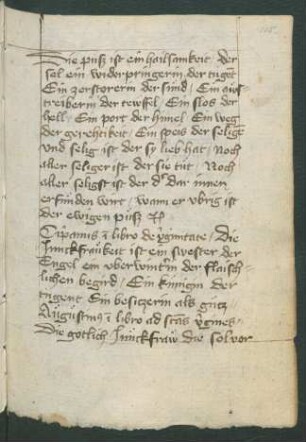 Die puß ist ein hailsamkeit der
sel ein widerpringerin der tugēt
Ein zerstorerin der sünd / Ein aus
treiberin der tewffel / Ein slos der
hell / Ein port der himel Ein weg
der gerechtikeit / Ein speis der seligē
und selig ist der sy lieb hat / Noch
aller seliger ist der sie tut / Noch
aller seligst ist der dar innen
erfunden wirt / wann er ubrig ist
der ewigen pusß
Cipanus ī libro de
Junckfraukeit ist ein swester der
Engel ein uberwinterin der flaisch
lichen begird / Ein künigin der
tugent Ein besiczerin als gutz
Augustinus ī libro ad
Die gotlich Junckfraw die sol vor